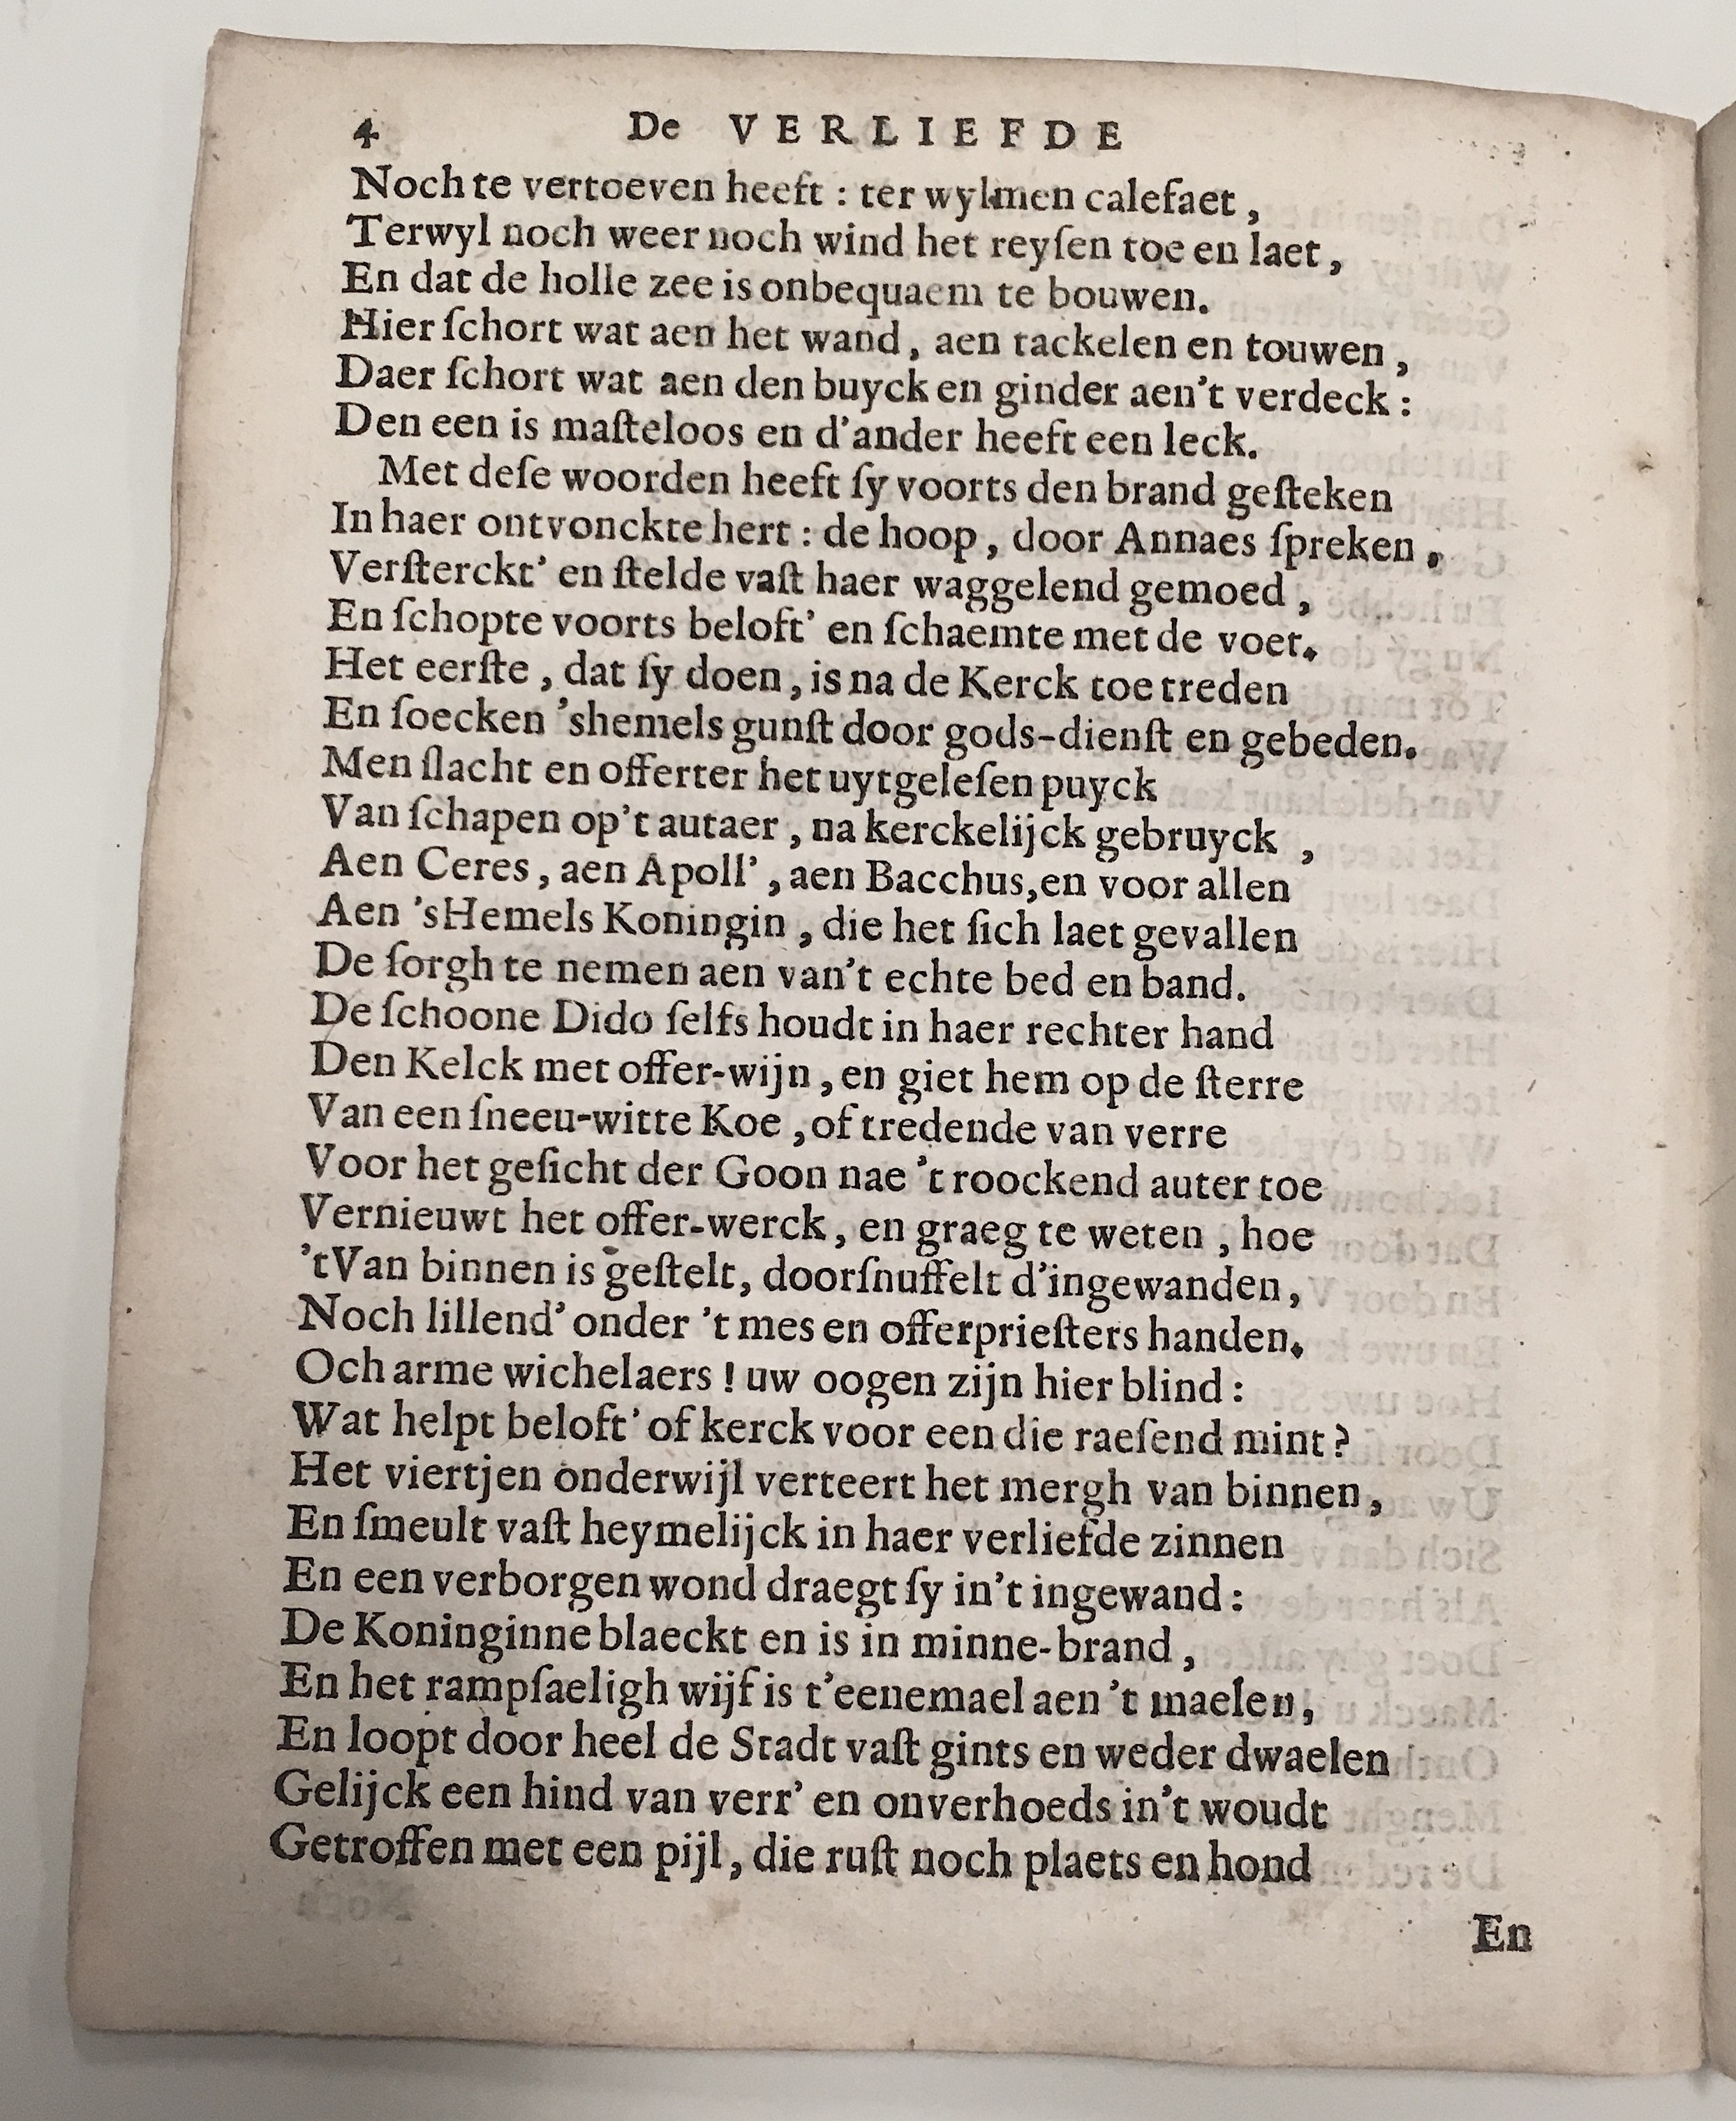 4 De VERLIEFDE
Noch te vertoeven heeft : ter wylmen calefaet ,
Terwyl noch weer noch wind het reyſen toe en laet ,
En dat de holle zee is onbequaem te bouwen.
Hier ſchort wat aen het wand , aen tackelen en touwen ,
Daer ſchort wat aen den buyck en ginder aen't verdeck :
Den een is maſteloos en d'ander heeft een leck.
Met deſe woorden heeft ſy voorts den brand geſteken
In haer ontvonckte hert : de hoop , door Annaes ſpreken ,
Verſterckt' en ſtelde vaſt haer waggelend gemoed ,
En ſchopte voorts beloft' en ſchaemte met de voet.
Het eerſte , dat ſy doen , is na de Kerck toe treden
En ſoecken 'shemels gunſt door gods-dienſt en gebeden.
Men ſlacht en offerter het uytgeleſen puyck
Van ſchapen op't autaer , na kerckelijck gebruyck ,
Aen Ceres , aen Apoll' , aen Bacchus,en voor allen
Aen 'sHemels Koningin , die het ſich laet gevallen
De ſorgh te nemen aen van't echte bed en band.
De ſchoone Dido ſelfs houdt in haer rechter hand
Den Kelck met offer-wijn , en giet hem op de ſterre
Van een ſneeu-witte Koe , of tredende van verre
Voor het geſicht der Goon nae 't roockend auter toe
Vernieuwt het offer-werck , en graeg te weten , hoe
't Van binnen is geſtelt, doorſnuffelt d'ingewanden,
Noch lillend' onder 't mes en offerprieſters handen.
Och arme wichelaers ! uw oogen zijn hier blind :
Wat helpt beloft' of kerck voor een die raeſend mint ?
Het viertjen onderwijl verteert het mergh van binnen ,
En ſmeult vaſt heymelijck in haer verliefde zinnen
En een verborgen wond draegt ſy in't ingewand :
De Koninginne blaeckt en is in minne-brand ,
En het rampſaeligh wijf is t'eenemael aen 't maelen,
En loopt door heel de Stadt vaſt gints en weder dwaelen
Gelijck een hind van verr' en onverhoeds in't woudt
Getroffen met een pijl, die ruſt noch plaets en hond
En